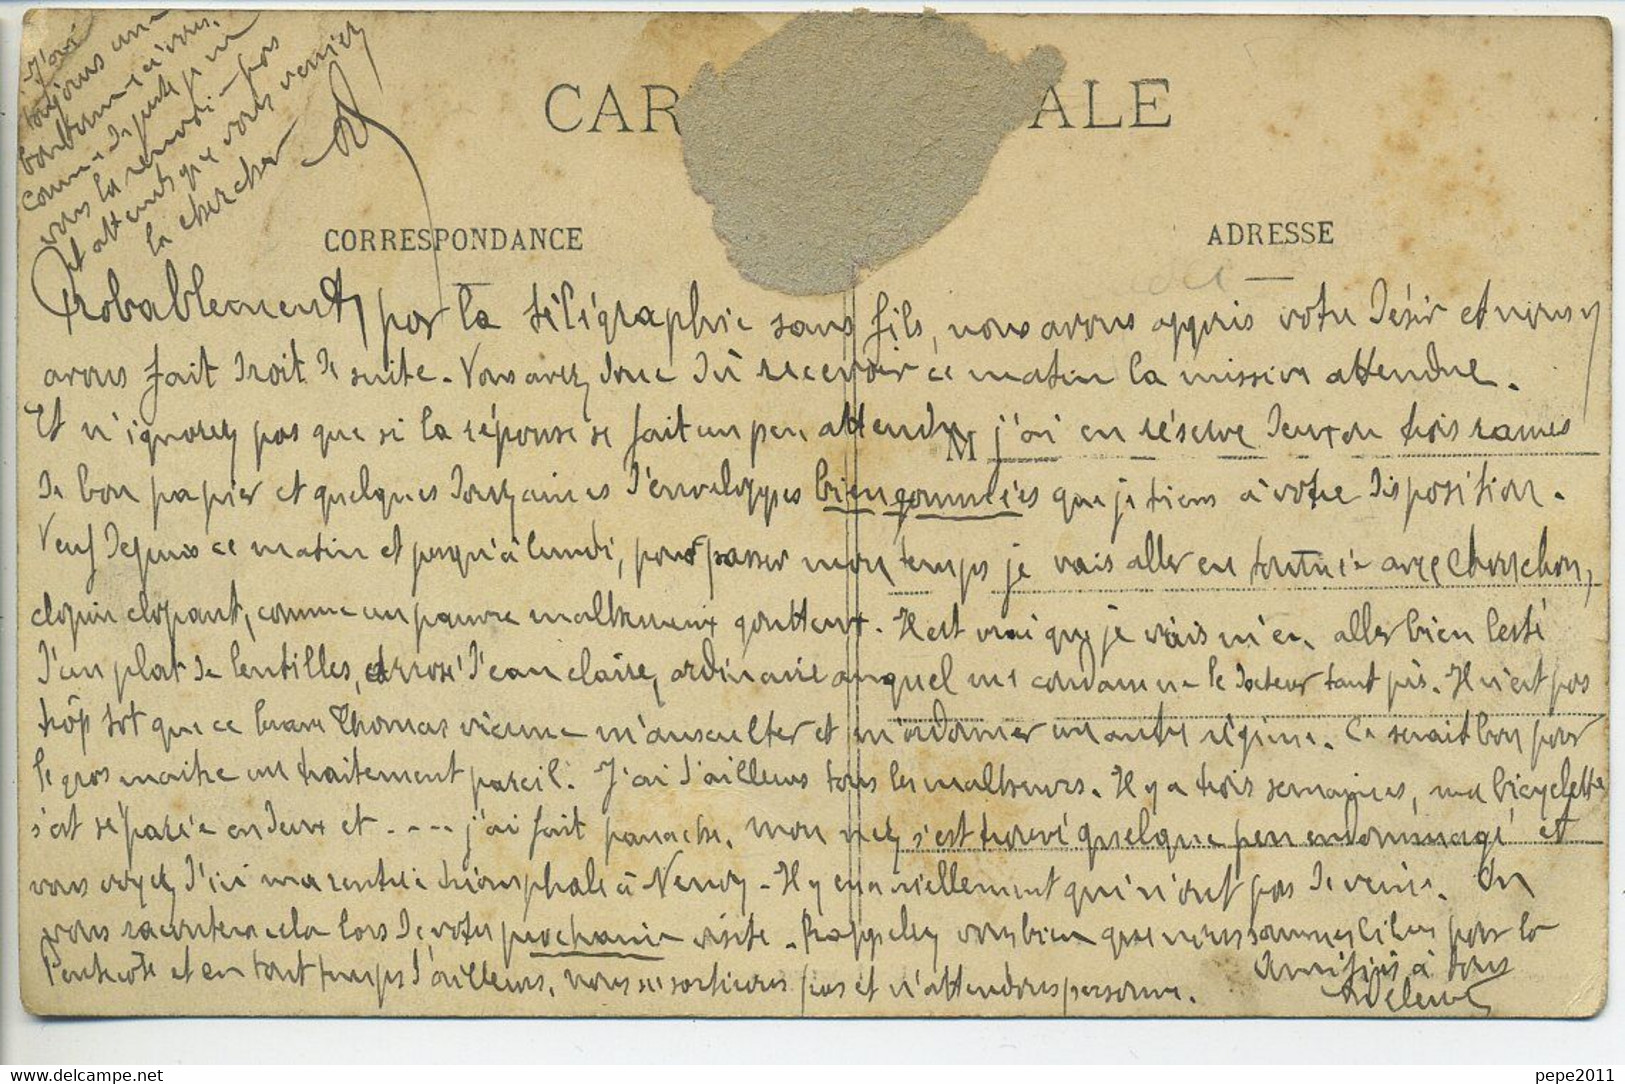 J'ai
toujours une
bonbonne à vous.
comme de juste je ne
vous la renvoie pas
et attends que vous veniez
la chercher
CAR ALE
CORRESPONDANCE
ADRESSE
Probablement par la télégraphie sans fils, nous avons appris votre désir et nous y
avons fait droit de suite. Vous avez donc dû recevoir ce matin la missive attendue.
Et n'ignorez pas que si la réponse se fait un peu attendre j'ai en réserve deux ou trois rames
M
de bon papier et quelques douzaines d'enveloppes bien gommées que je tiens à votre disposition.
Veuf depuis ce matin et jusqu'à lundi, pour passer mon temps je vais aller en tournée avec Chouchou,
clopin clopant, comme un pauvre malheureux goutteux. Il est vrai que je vais m'en aller bien lesté
d'un plat de lentilles, arrosé d'eau claire, ordinaire auquel me condamne le docteur tant pis. Il n'est pas
trop tôt que ce brave Thomas vienne m'ausculter et m'ordonner un autre régime. Ce serait bon pour
le gros maître un traitement pareil. J'ai d'ailleurs tous les malheurs. Il y a trois semaines, ma bicyclette
s'est séparée en deux et .... j'ai fait panache. Mon nez s'est trouvé quelque peu endommagé et
vous voyez d'ici ma rentrée triomphale à Neuvy. Il y en a réellement qui n'ont pas de veine. On
vous racontera cela lors de votre prochaine visite. Rappelez vous bien que nous sommes libres pour la
Pentecôte et en tout temps d'ailleurs, nous ne sortirons pas et n'attendons personne.
Amitiés à tous
pepe2011
www.delcampe.net